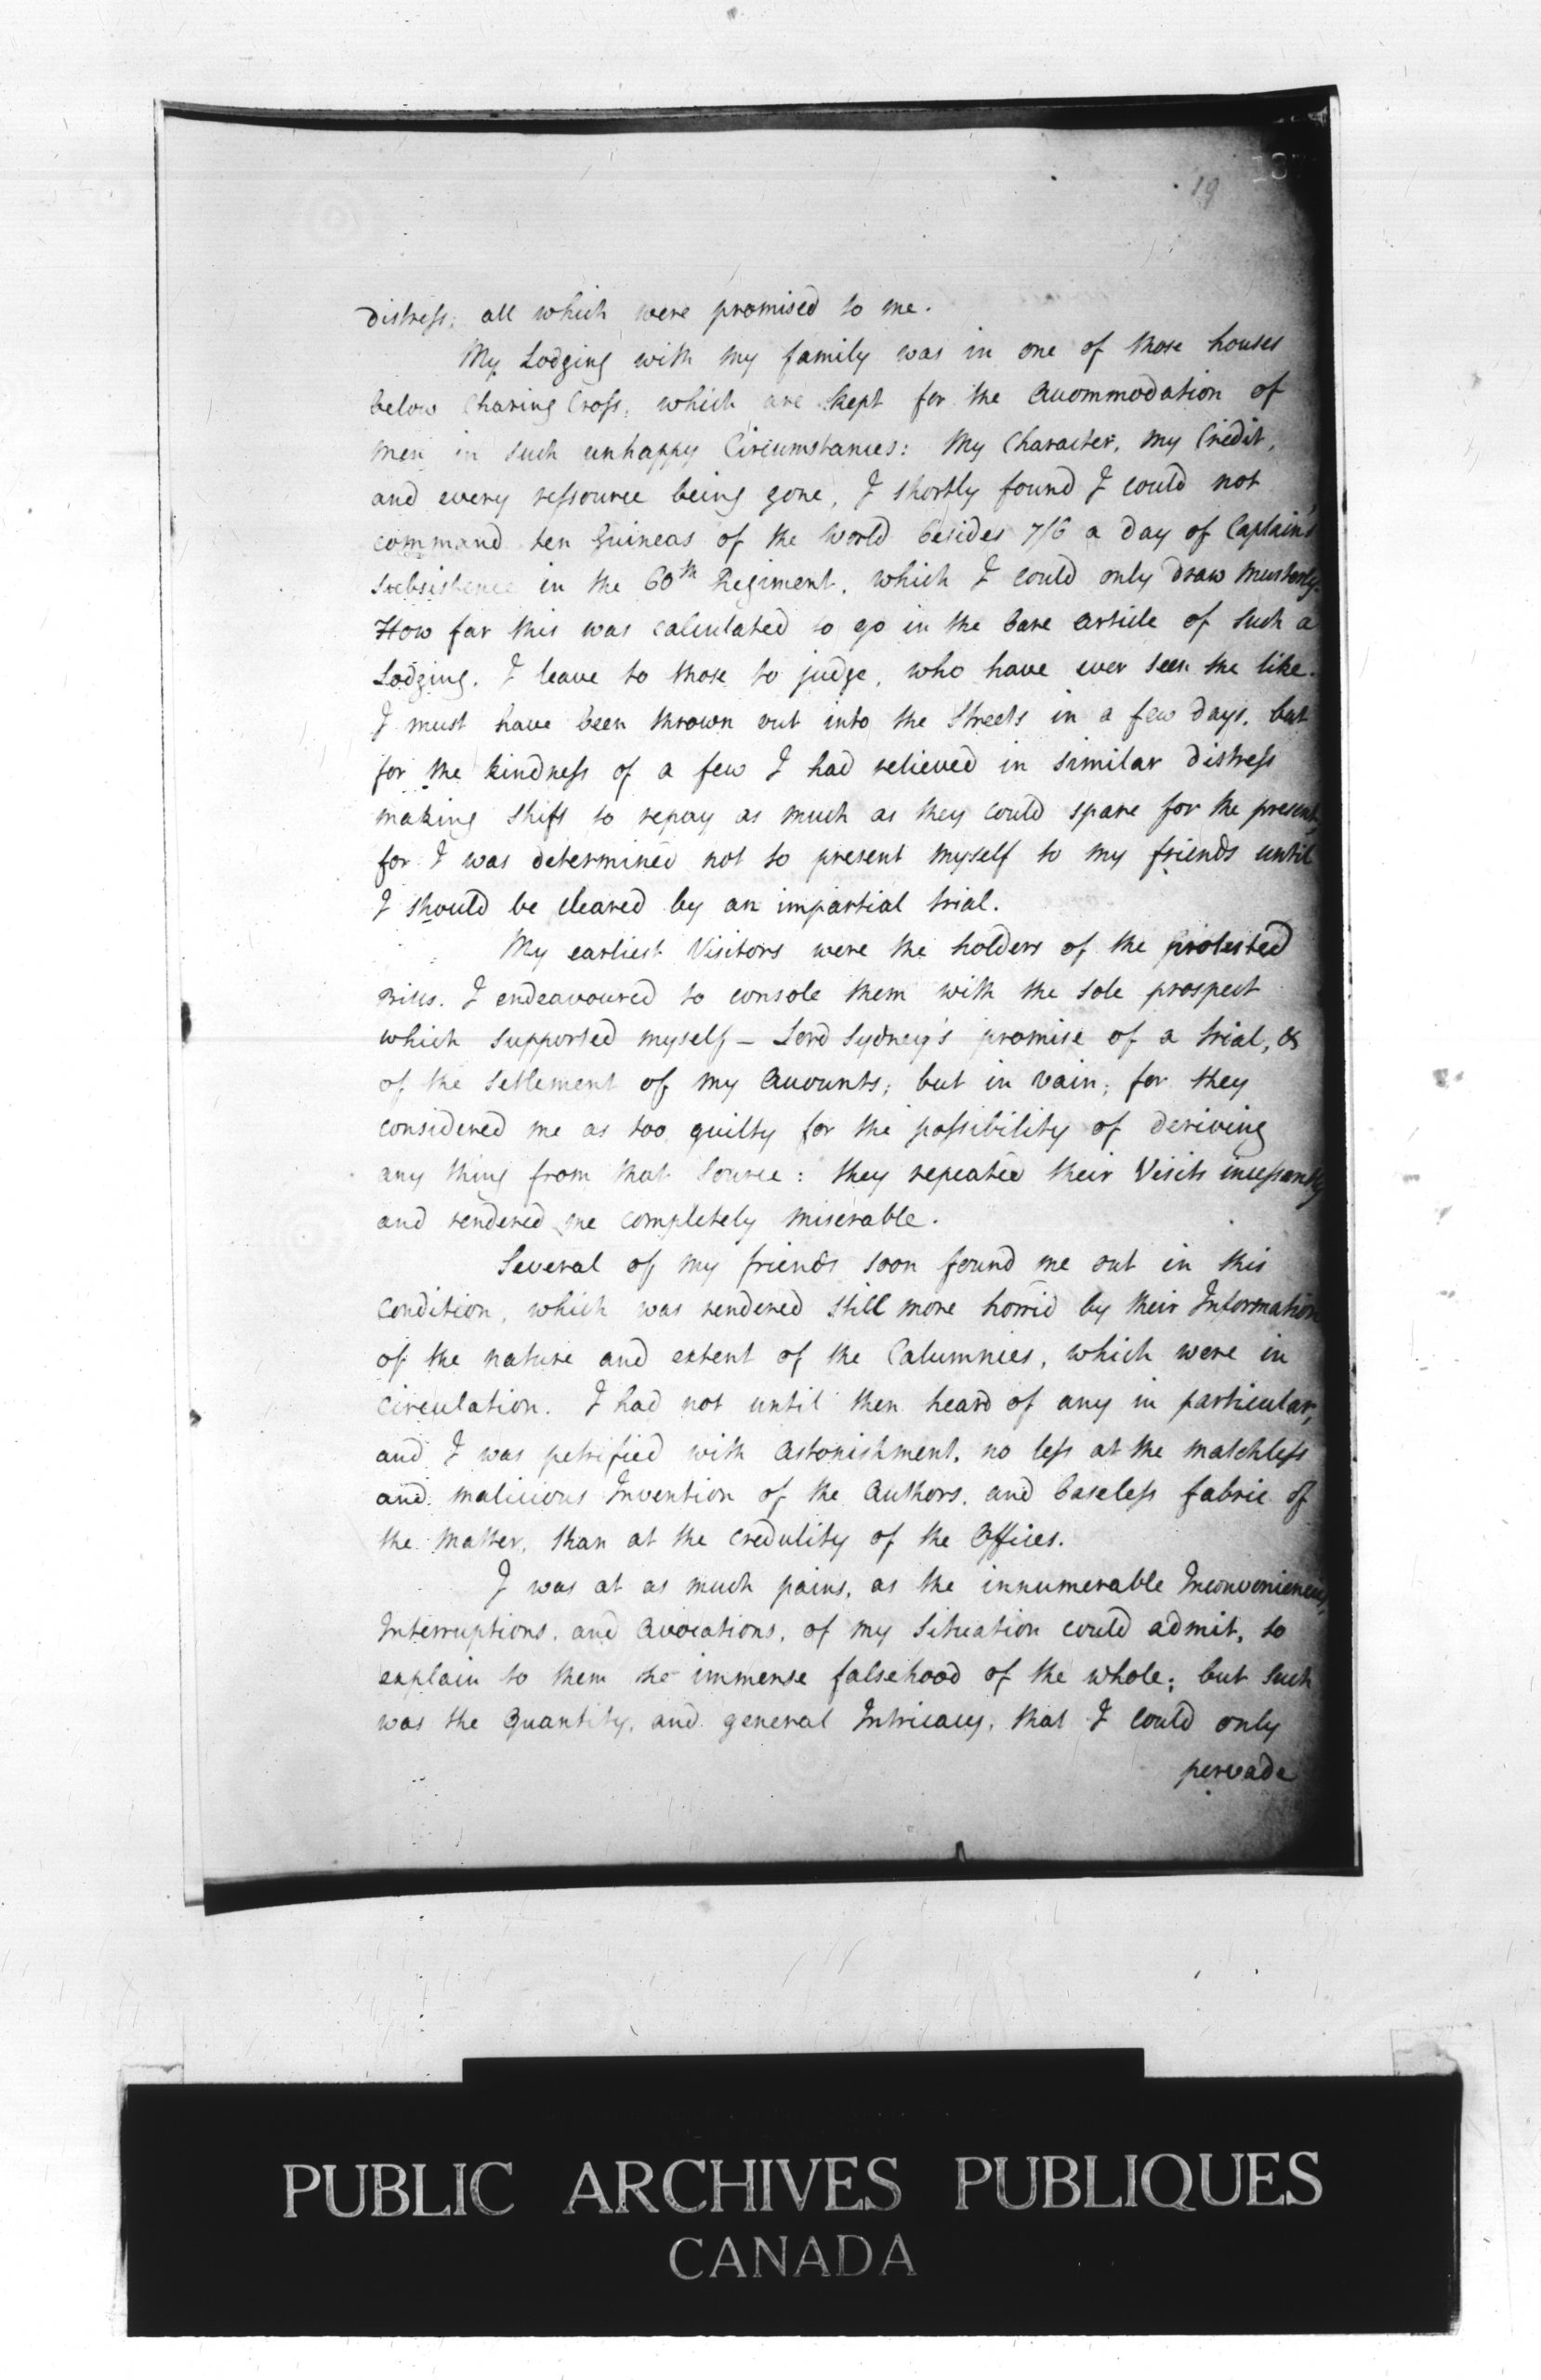 19
distress; all which were promised to me.
My Lodging with my family was in one of those houses
below Charing Cross, which are kept for the Accommodation of
men in such unhappy Circumstances: My Character, my Credit,
and every ressource being gone, I shortly found I could not
command ten Guineas of the World besides 7/6 a day of Captain's
Subsistence in the 60th Regiment, which I could only draw musterly.
How far this was calculated to go in the bare article of such a
Lodging, I leave to those to judge, who have ever seen the like.
I must have been thrown out into the Streets in a few days, but
for the kindness of a few I had relieved in similar distress
making shift to repay as much as they could spare for the present,
for I was determined not to present myself to my friends until
I should be cleared by an impartial trial.
My earliest Visitors were the holders of the protested
Bills. I endeavoured to console them with the sole prospect
which supported myself – Lord Sydney's promise of a trial, &
of the Settlement of my Accounts; but in vain; for they
considered me as too guilty for the possibility of deriving
any thing from that Source: they repeated their Visits incessantly
and rendered me completely miserable.
Several of my friends soon found me out in this
Condition, which was rendered still more horrid by their Information
of the nature and extent of the Calumnies, which were in
Circulation. I had not until then heard of any in particular,
and I was petrified with Astonishment, no less at the matchless
and malicious Invention of the Authors, and baseless fabric of
the Matter, than at the Credulity of the Offices.
I was at as much pains, as the innumerable Inconveniencies,
Interruptions, and Avocations, of my Situation could admit, to
explain to them the immense falsehood of the whole; but such
was the Quantity, and general Intricacy, that I could only
pervade
PUBLIC ARCHIVES PUBLIQUES
CANADA